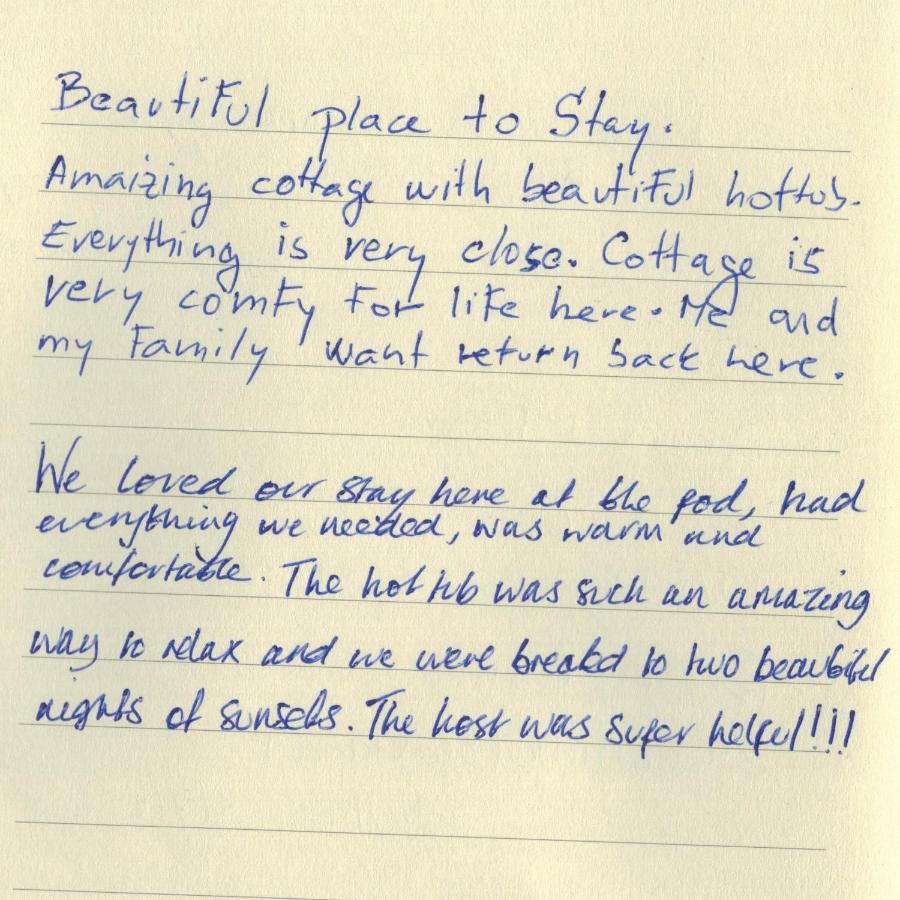 Beautiful place to Stay.
Amaizing cottage with beautiful hottub.
Everything is very close. Cottage is
very comfy for life here. Me and
my family want return back here.
We loved our stay here at the pod, had
everything we needed, was warm and
comfortable. The hot tub was such an amazing
way to relax and we were breated to two beautiful
nights of sunsets. The host was super helpful!!!!